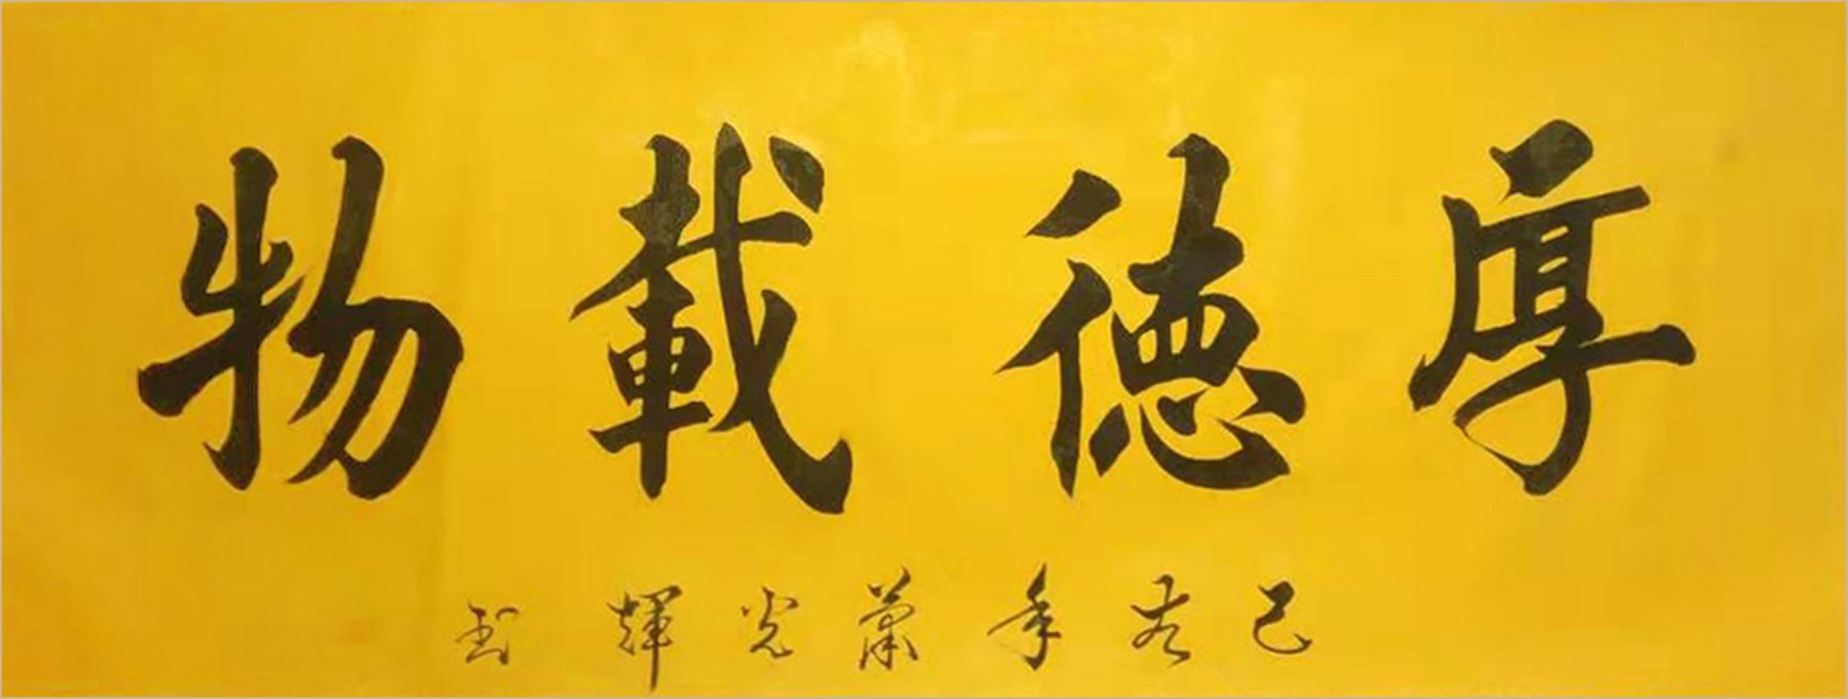 厚德載物
己亥年蕭光輝书